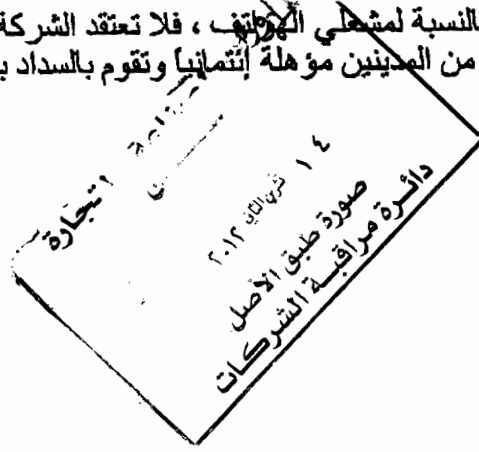 بالنسبة لمشغلي الهواتف ، فلا تعتقد الشركة
من المدينين مؤهلة إئتمانياً وتقوم بالسداد ب
التجارة
١٤ تشرين الثاني ٢٠١٢
صورة طبق الاصل
دائرة مراقبة الشركات